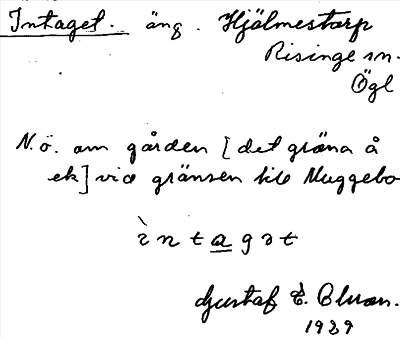 Intaget. äng. Hjälmestorp
Risinge sn.
Ögl
N.ö. om gården [det gröna å
ek] vid gränsen till Muggebo
ìntagət
Gustaf E. Bluon.
1929